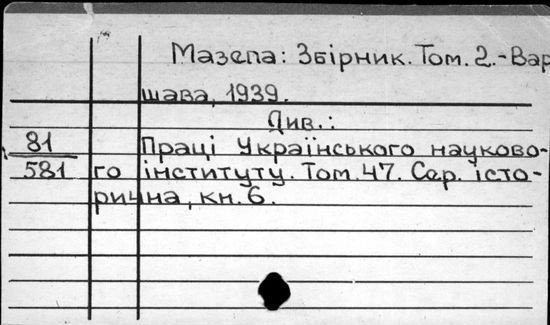 Мазепа: Збірник. Том. 2.-Вар
шава, 1939.
Див.:
81 Праці Українського науково-
581 го інституту. Том. 47. Сер. істо-
рична, кн. 6.